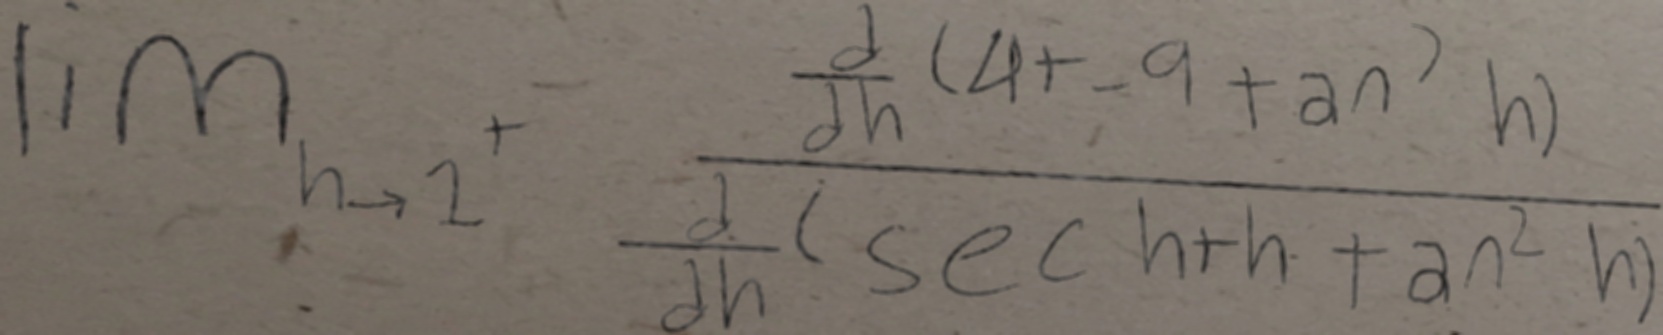 \lim_{h \to 2^+} \frac{\frac{d}{dh}(4 + -9 + \tan^{3} h)}{\frac{d}{dh}(\sec h + h + \tan^{2} h)}